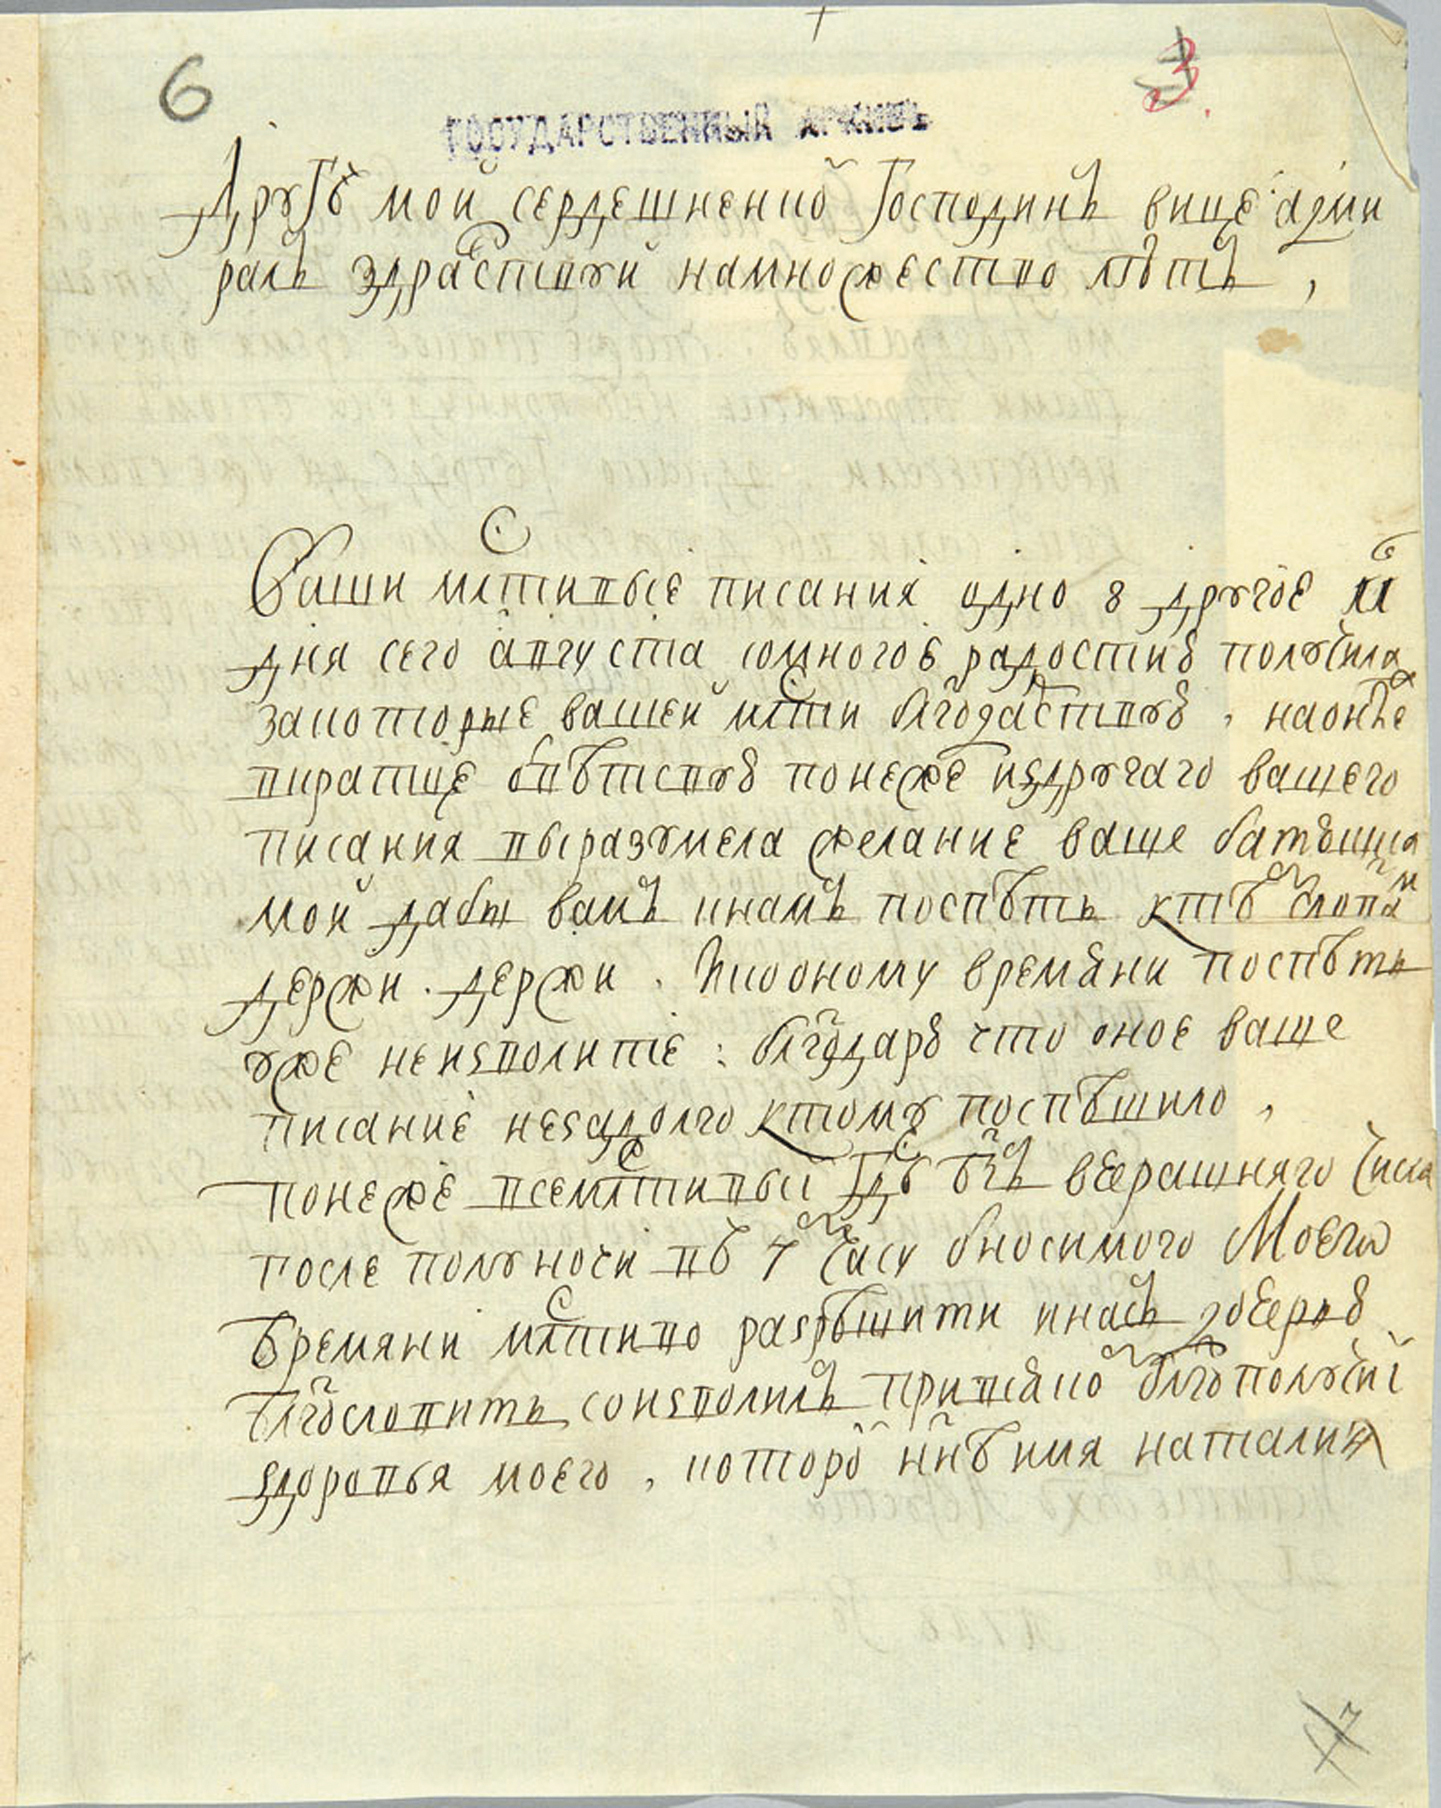 6
3.
ГОСУДАРСТВЕННЫЙ АРХИВЪ
Другъ мой сердешненкой Господинъ вице адми
ралъ здравствуй намножество лѣтъ,
Ваши млстивые писания одно 8 другое 11
дня сего августа сомногою радостию получила
закоторые вашей млсти блгодарствую, наоные
ниратце отвѣтствую понеже издругаго вашего
писания выразумела желание ваше батюшка
мой дабы вамъ инамъ поспѣть ктѣм словам
держи. держи. Икооному времяни поспѣть
уже неизволите: блгодарю что оное ваше
писание незадолго ктому поспѣшило,
понеже всемлстивый Гдь Бгъ вчерашняго числа
после полуночи въ 4 часу сносимого Моего
Времяни млстиво разрѣшити инасъ дочерью
блгословить соизволилъ притом блгополучии
здоровья моего, которой ннѣ имя наталия
7